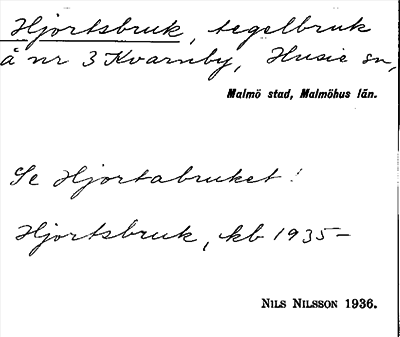 Hjortsbruk, tegelbruk
å nr 3 Kvarnby, Husie sn,
Malmö stad, Malmöhus län.
Se Hjortabruket!
Hjortsbruk, kb 1935–
NILS NILSSON 1936.